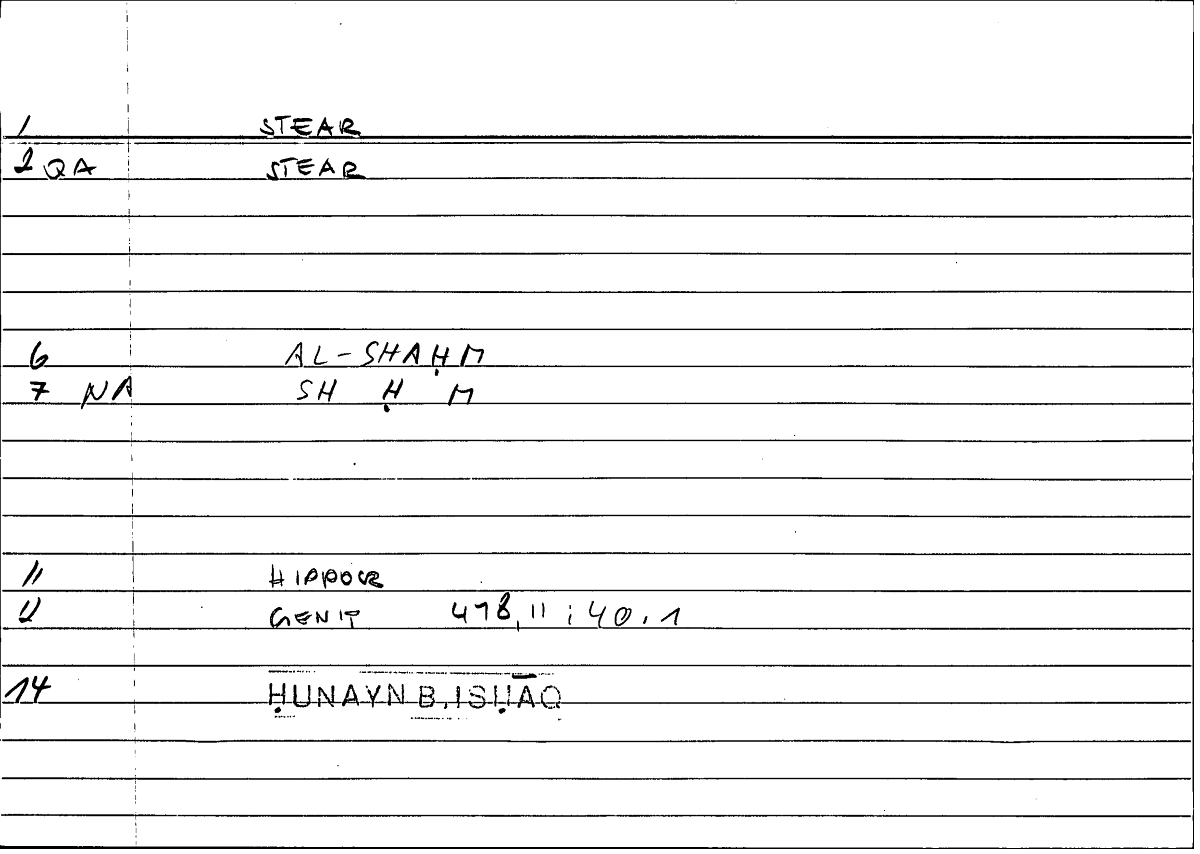 1 STEAR
2 QA STEAR
6 AL-SHAḤM
7 NA SH Ḥ M
11 HIPPOCR
12 GENIT 478,11 ; 40.1
14 ḤUNAYN B. ISḤĀQ